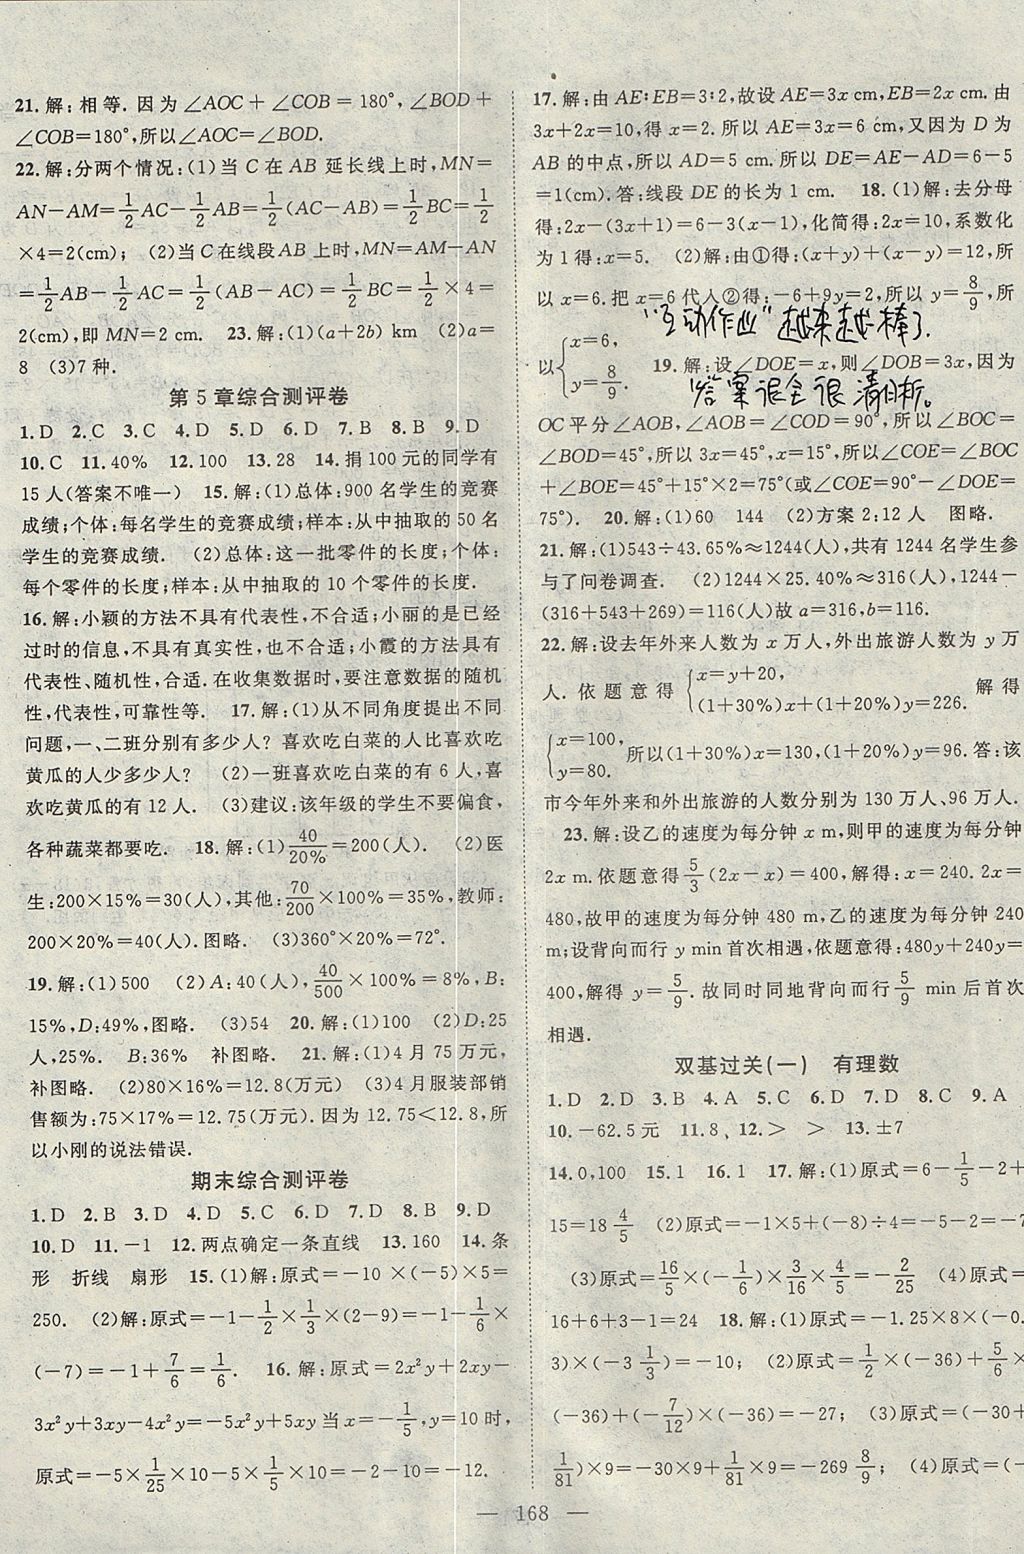 21.解:相等.因为∠AOC+∠COB=180°,∠BOD+
∠COB=180°,所以∠AOC=∠BOD.
22.解:分两个情况:(1)当C在AB延长线上时,MN=
AN-AM=1/2AC-1/2AB=1/2(AC-AB)=1/2BC=1/2
×4=2(cm); (2)当C在线段AB上时,MN=AM-AN
=1/2AB-1/2AC=1/2(AB-AC)=1/2BC=1/2×4=
2(cm),即MN=2 cm. 23.解:(1)(a+2b) km (2)a=
8 (3)7种.
第5章综合测评卷
1.D 2.C 3.C 4.D 5.D 6.D 7.B 8.B 9.D
10.C 11.40% 12.100 13.28 14.捐100元的同学有
15人(答案不唯一) 15.解:(1)总体:900名学生的竞赛
成绩;个体:每名学生的竞赛成绩;样本:从中抽取的50名
学生的竞赛成绩. (2)总体:这一批零件的长度;个体:
每个零件的长度;样本:从中抽取的10个零件的长度.
16.解:小颖的方法不具有代表性,不合适;小丽的是已经
过时的信息,不具有真实性,也不合适;小霞的方法具有
代表性、随机性,合适.在收集数据时,要注意数据的随机
性,代表性,可靠性等. 17.解:(1)从不同角度提出不同
问题,一、二班分别有多少人?喜欢吃白菜的人比喜欢吃
黄瓜的人少多少人? (2)一班喜欢吃白菜的有6人,喜
欢吃黄瓜的有12人. (3)建议:该年级的学生不要偏食,
各种蔬菜都要吃. 18.解:(1)40/20%=200(人). (2)医
生:200×15%=30(人),其他:70/200×100%=35%,教师:
200×20%=40(人).图略. (3)360°×20%=72°.
19.解:(1)500 (2)A:40(人),40/500×100%=8%,B:
15%,D:49%,图略. (3)54 20.解:(1)100 (2)D:25
人,25%. B:36% 补图略. 21.解:(1)4月75万元,
补图略. (2)80×16%=12.8(万元) (3)4月服装部销
售额为:75×17%=12.75(万元).因为12.75<12.8,所
以小刚的说法错误.
期末综合测评卷
1.D 2.B 3.D 4.D 5.C 6.D 7.D 8.B 9.D
10.D 11.-1 12.两点确定一条直线 13.160 14.条
形 折线 扇形 15.(1)解:原式=-10×(-5)×5=
250. (2)解:原式=-1-1/2×1/3×(2-9)=-1-1/6×
(-7)=-1+7/6=1/6. 16.解:原式=2x²y+2xy-
3x²y+3xy-4x²y=-5x²y+5xy当x=-1/5,y=10时,
原式=-5×1/25×10-5×1/5×10=-2-10=-12.
17.解:由AE∶EB=3∶2,故设AE=3x cm,EB=2x cm.由
3x+2x=10,得x=2.所以AE=3x=6 cm,又因为D为
AB的中点,所以AD=5 cm.所以DE=AE-AD=6-5
=1(cm).答:线段DE的长为1 cm. 18.(1)解:去分母
得:2x-(3x+1)=6-3(x-1),化简得:2x=10,系数化
为1得:x=5. (2)解:由①得:(x+y)+(x-y)=12,所
以x=6.把x=6代人②得:-6+9y=2,所以y=8/9,所
"互动作业"越来越棒了.
以{x=6, y=8/9. 19.解:设∠DOE=x,则∠DOB=3x,因为
答案很全很清晰。
OC平分∠AOB,∠AOB=∠COD=90°,所以∠BOC=
∠BOD=45°,所以3x=45°,x=15°.所以∠COE=∠BOC
+∠BOE=45°+15°×2=75°(或∠COE=90°-∠DOE=
75°). 20.解:(1)60 144 (2)方案2:12人 图略.
21.解:(1)543÷43.65%≈1244(人),共有1244名学生参
与了问卷调查. (2)1244×25.40%≈316(人),1244-
(316+543+269)=116(人)故a=316,b=116.
22.解:设去年外来人数为x万人,外出旅游人数为y万
人.依题意得{x=y+20, (1+30%)x+(1+20%)y=226. 解得
{x=100, y=80. 所以(1+30%)x=130,(1+20%)y=96.答:该
市今年外来和外出旅游的人数分别为130万人、96万人.
23.解:设乙的速度为每分钟x m,则甲的速度为每分钟
2x m.依题意得5/3(2x-x)=400,解得:x=240.2x=
480,故甲的速度为每分钟480 m,乙的速度为每分钟240
m;设背向而行y min首次相遇,依题意得:480y+240y=
400,解得y=5/9.故同时同地背向而行5/9 min后首次
相遇.
双基过关(一) 有理数
1.D 2.D 3.B 4.A 5.C 6.D 7.D 8.C 9.A
10.-62.5元 11.8、 12.> > 13.±7
14.0,100 15.1 16.1 17.解:(1)原式=6-1/5-2+
15=18 4/5 (2)原式=-1×5+(-8)÷4=-5-2=-7
(3)原式=16/5×(-1/6)×3/16×4/5=-2/25 (4)原式=
16+6+3-1=24 18.解:(1)原式=-1.25×8×(-0.
3)×(-3 1/3)=-10; (2)原式=1/2×(-36)+5/6×
(-36)+(-7/12)×(-36)=-27; (3)原式=(-30+
1/81)×9=-30×9+1/81×9=-269 8/9; (4)原式=(-
— 168 —